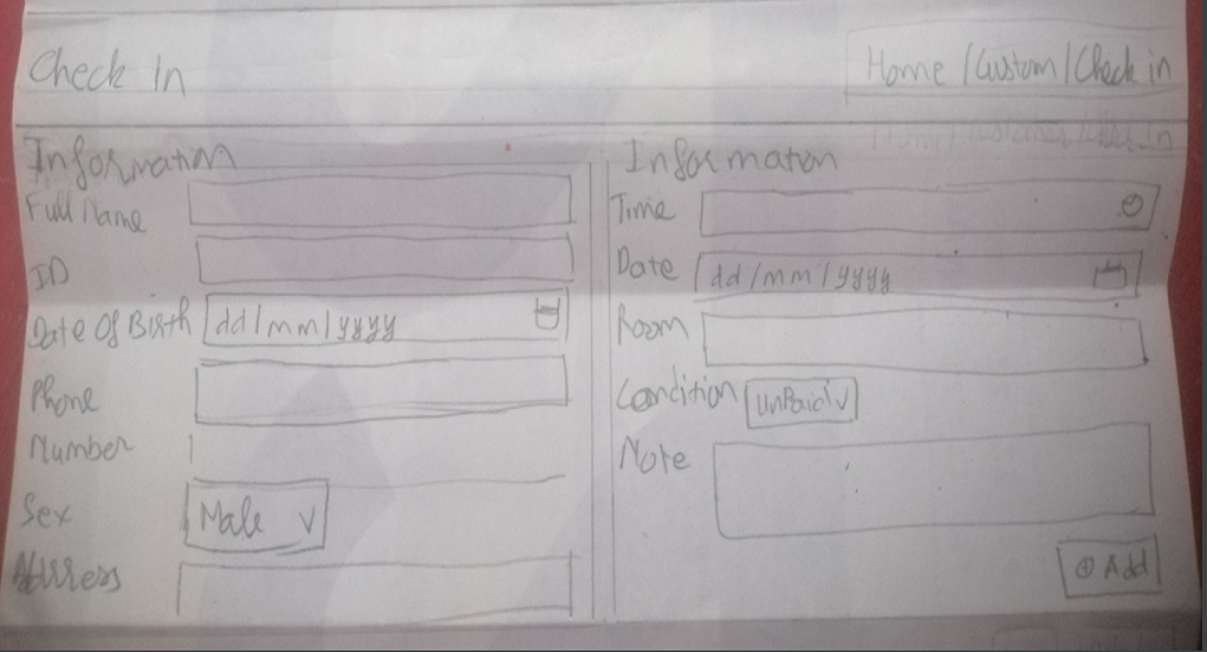 Check In
Home / Custom / Check in
Information
Full Name
ID
Date Of Birth dd/mm/yyyy
Phone
Number
Sex Male
Address
Information
Time
Date dd/mm/yyyy
Room
Condition UnPaid
Note
Add